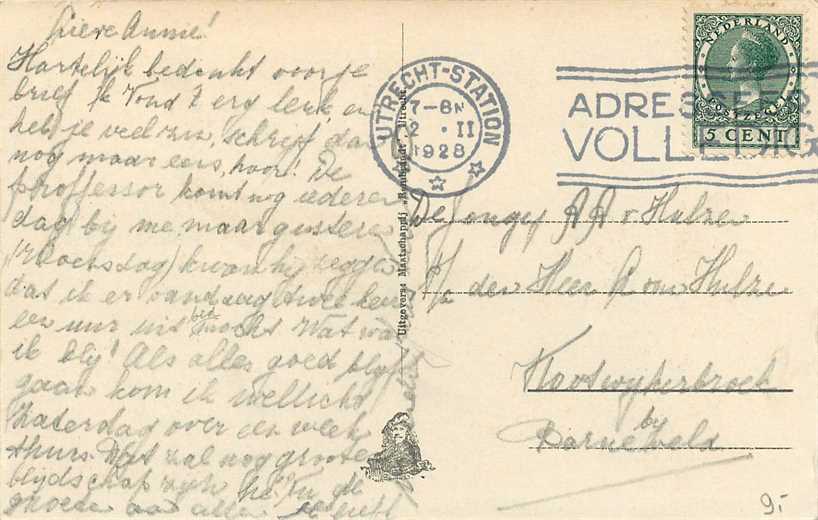 Lieve Annie!
Hartelijk bedankt voor je
brief. Ik vond 't erg leuk, en
heb je veel zin, schrijf dan
nog maar eens, hoor! De
proffessor komt nog iedere
dag bij me, maar gisteren
(Woensdag) kwam hij zeggen
dat ik er vandaag twee keer
een uur uit bed mocht. Wat was
ik blij! Als alles goed blijft
gaan kom ik wellicht
Zaterdag over een week
thuis. Wat zal nog grooter
blijdschap zijn hè? Nu de
groeten aan allen
UTRECHT-STATION
7-8N
2 · II
1928
ADRESSEER
VOLLEDIG
NEDERLAND
POSTZEGEL
5 CENT
Uitgevers Maatschappij „Rembrandt" Utrecht
De Jongej. A A v Hulzen
p/a den Heer R van Hulzen
Kootwijkerbroek
bij
Barneveld
9,-